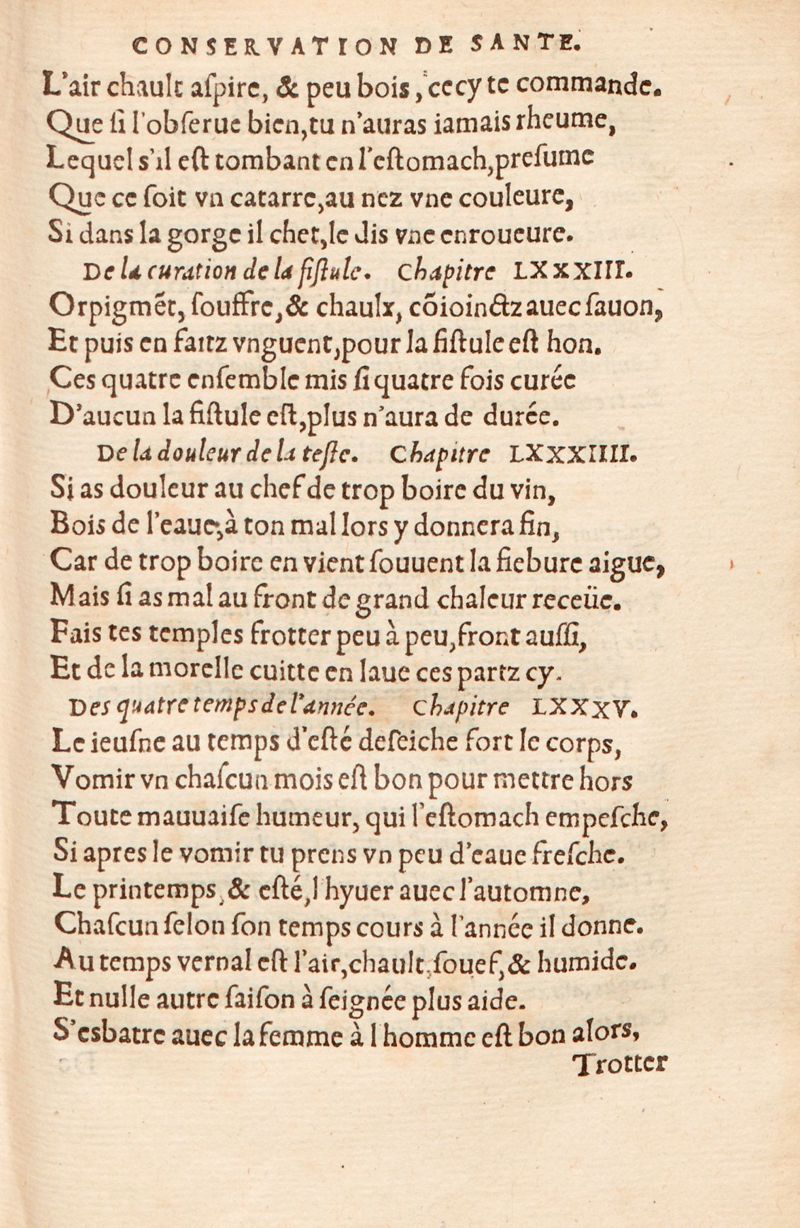 CONSERVATION DE SANTE.
L'air chault aſpire, & peu bois, cecy te commande.
Que ſi l'obſerue bien,tu n'auras iamais rheume,
Lequel s'il eſt tombant en l'eſtomach,preſume
Que ce ſoit vn catarre,au nez vne couleure,
Si dans la gorge il chet,le dis vne enroueure.
De la curation de la fiſtule. Chapitre LXXXIII.
Orpigmẽt, ſouffre,& chaulx, cõioinctz auec ſauon,
Et puis en faitz vnguent,pour la fiſtule eſt hon.
Ces quatre enſemble mis ſi quatre fois curée
D'aucun la fiſtule eſt,plus n'aura de durée.
De la douleur de la teſte. Chapitre LXXXIIII.
Si as douleur au chef de trop boire du vin,
Bois de l'eaue,à ton mal lors y donnera fin,
Car de trop boire en vient ſouuent la fiebure aigue,
Mais ſi as mal au front de grand chaleur receüe.
Fais tes temples frotter peu à peu,front auſſi,
Et de la morelle cuitte en laue ces partz cy.
Des quatre temps de l'année. Chapitre LXXXV.
Le ieuſne au temps d'eſté deſeiche fort le corps,
Vomir vn chaſcun mois eſt bon pour mettre hors
Toute mauuaiſe humeur, qui l'eſtomach empeſche,
Si apres le vomir tu prens vn peu d'eaue freſche.
Le printemps,& eſté,l hyuer auec l'automne,
Chaſcun ſelon ſon temps cours à l'année il donne.
Au temps vernal eſt l'air,chault,ſouef,& humide.
Et nulle autre ſaiſon à ſeignée plus aide.
S'esbatre auec la femme à l homme eſt bon alors,
Trotter